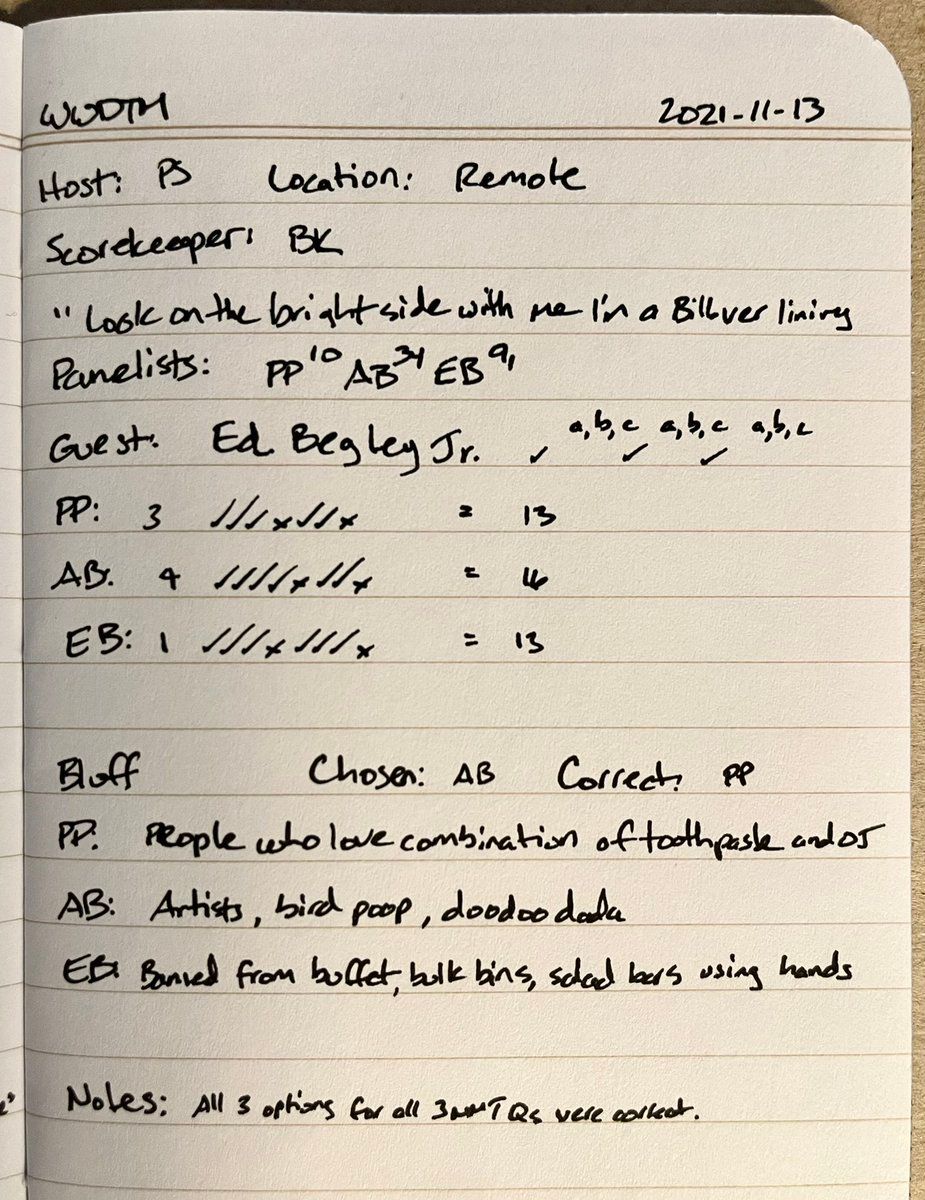 WWDTM 2021-11-13
Host: PS Location: Remote
Scorekeeper: BK
"Look on the bright side with me I'm a Billver lining
Panelists: PP 10 AB 34 EB 9,
Guest: Ed Begley Jr. ✓ a,b,c ✓ a,b,c ✓ a,b,c
PP: 3 ✓✓✓x✓✓x = 13
AB: 4 ✓✓✓✓x✓✓x = 16
EB: 1 ✓✓✓x✓✓✓x = 13
Bluff Chosen: AB Correct: PP
PP: People who love combination of toothpaste and OJ
AB: Artists, bird poop, doodoo dada
EB: Banned from buffet, bulk bins, salad bars using hands
Notes: All 3 options for all 3 TQs were correct.